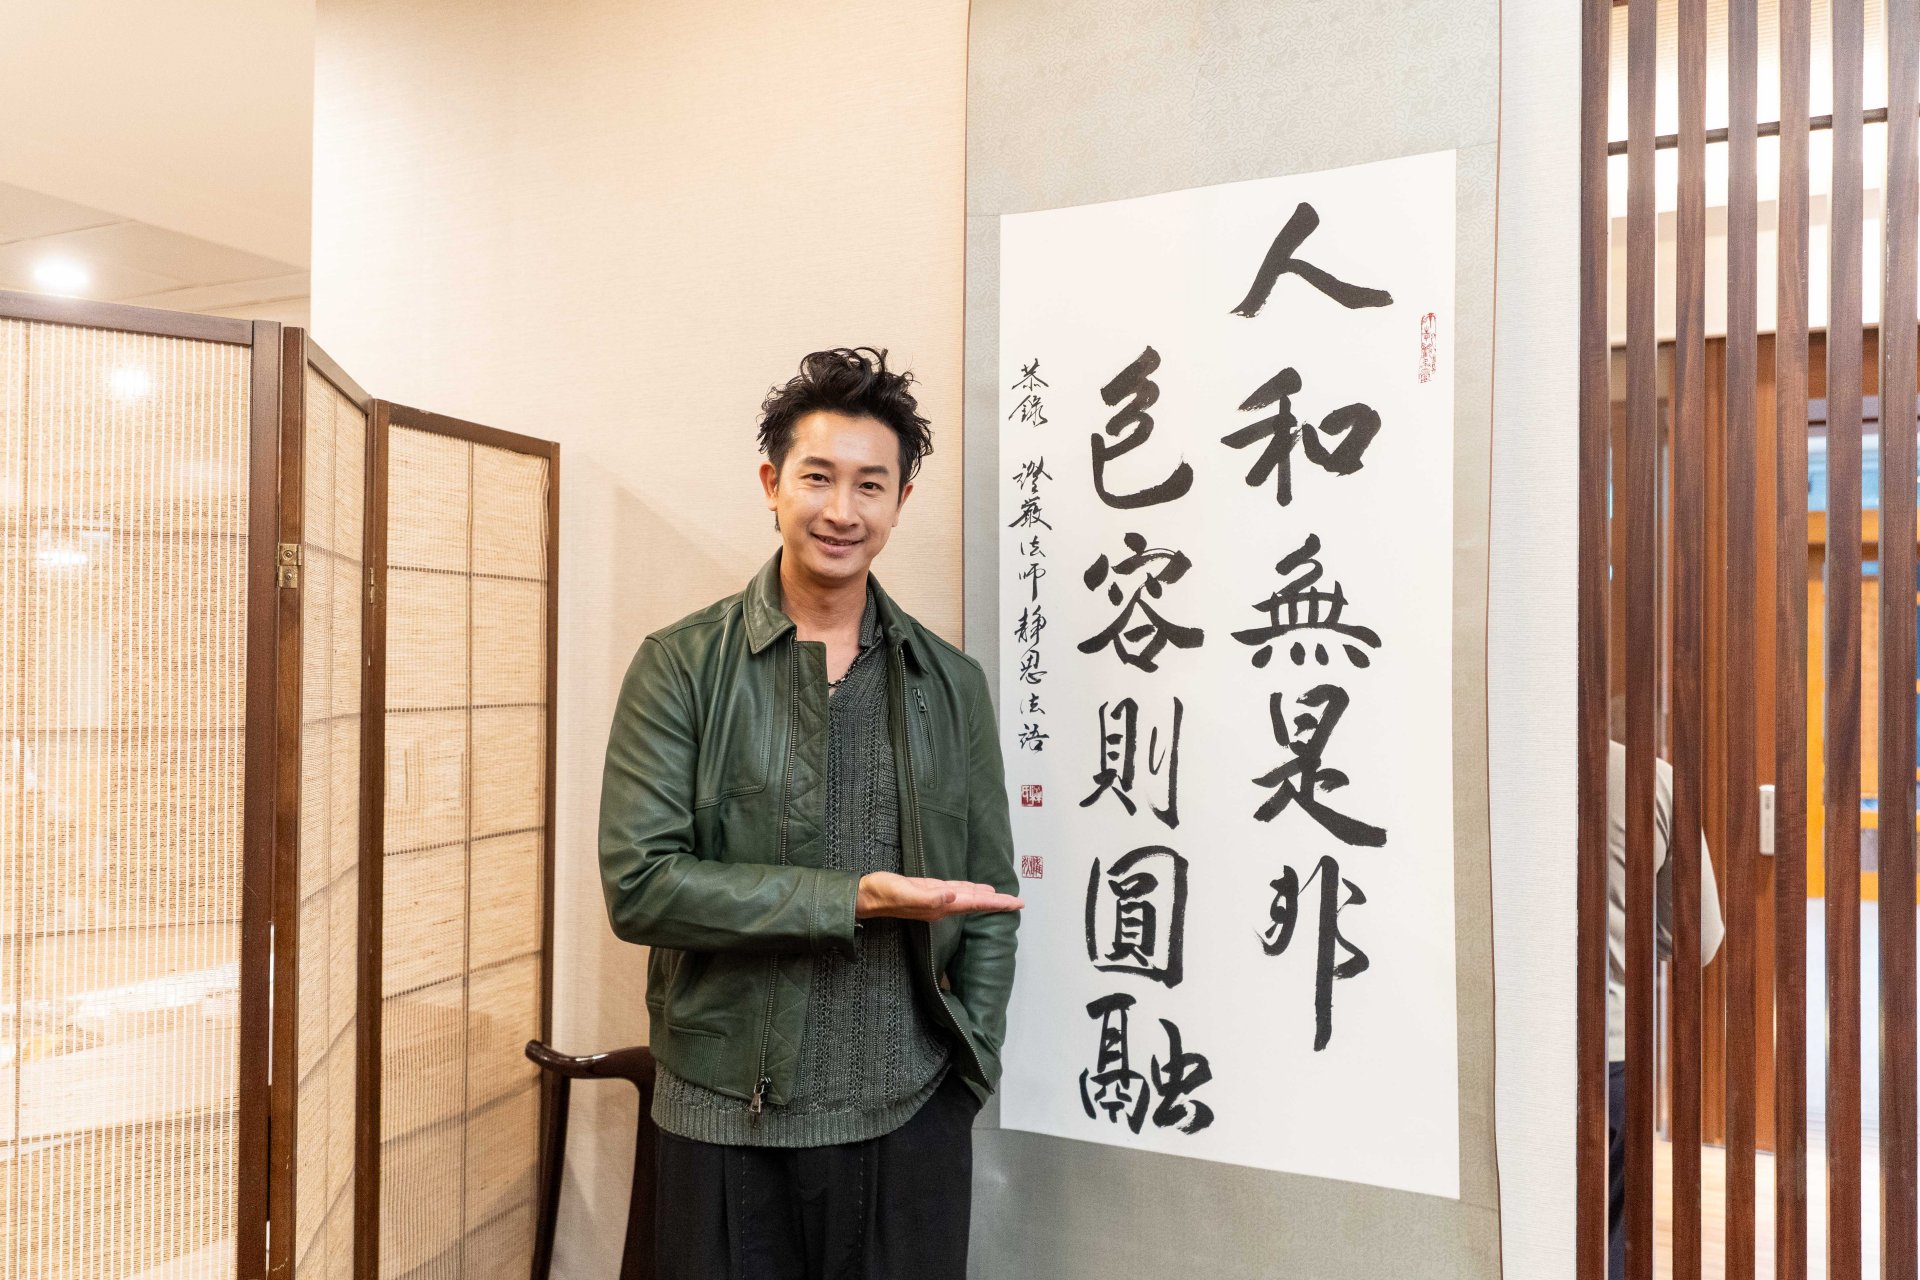 人和無是非
色容則圓融
恭錄 證嚴法師靜思法語